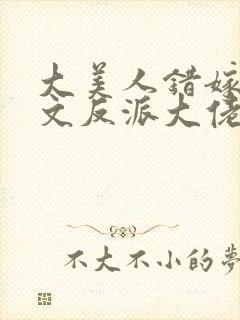 大美人错嫁
文反派大佬
不大不小的夢